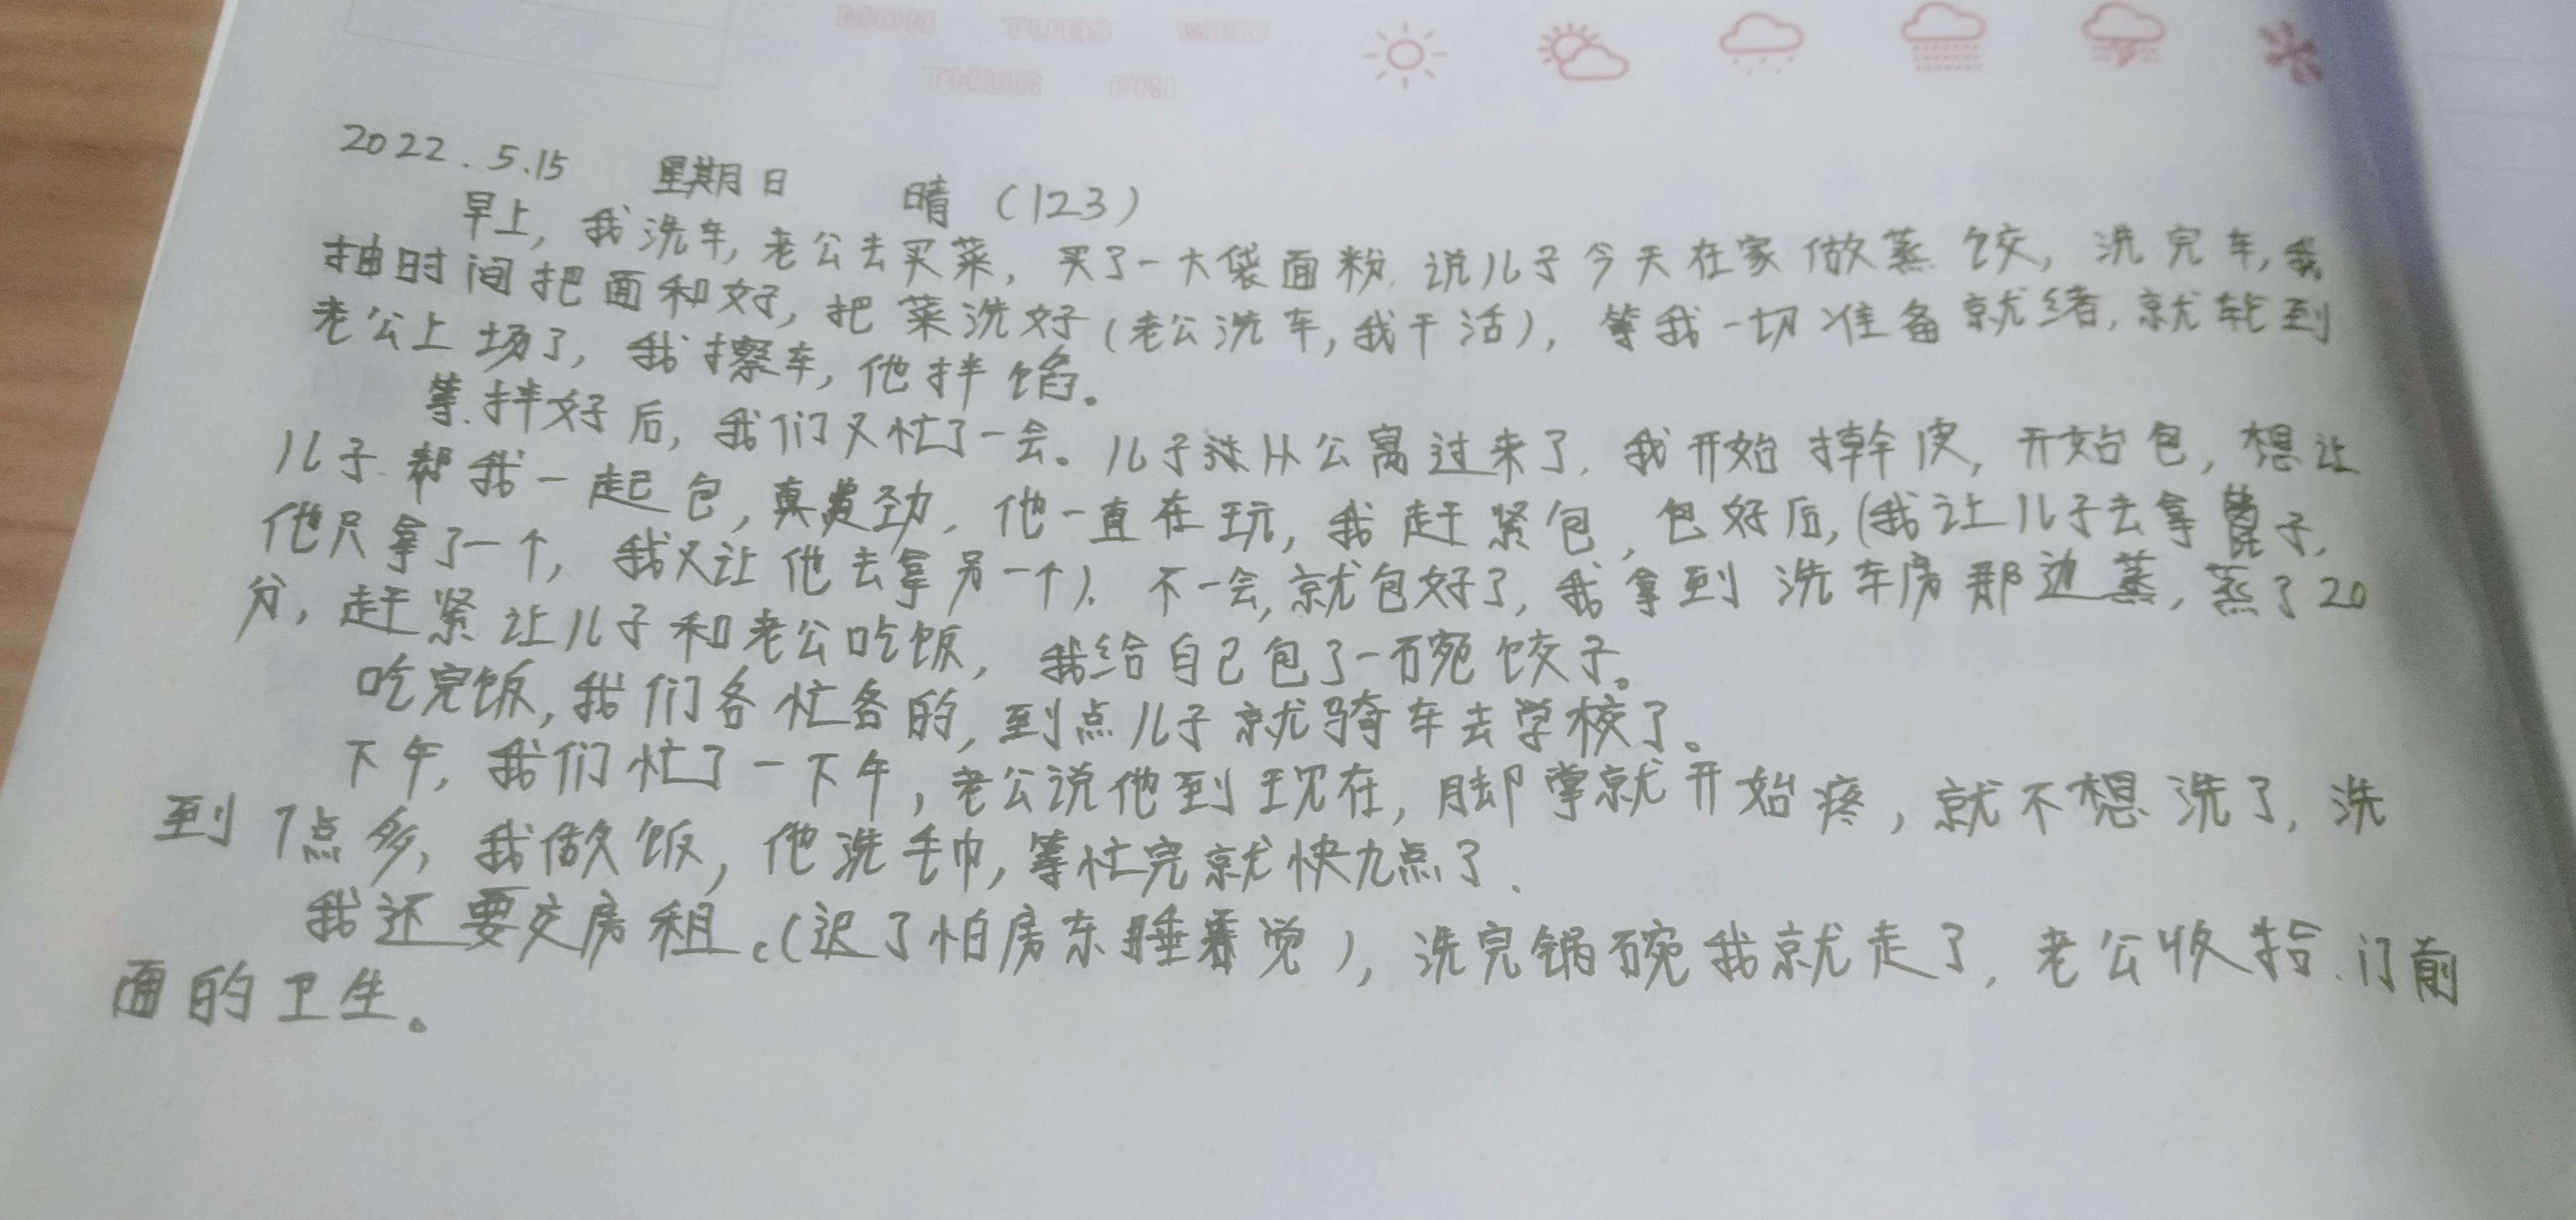 MON TUES WED
THUR FRI
2022.5.15 星期日 晴（123）
早上，我洗车，老公去买菜，买了一大袋面粉.说儿子今天在家做蒸饺，洗完车，我
抽时间把面和好，把菜洗好（老公洗车，我干活），等我一切准备就绪，就轮到
老公上场了，我擦车，他拌馅。
等.拌好后，我们又忙了一会。儿子从公寓过来了，我开始擀皮，开始包，想让
儿子帮我一起包，真费劲，他一直在玩，我赶紧包，包好后，（我让儿子去拿篦子，
他只拿了一个，我又让他去拿另一个）.不一会，就包好了，我拿到洗车房那边蒸，蒸了20
分，赶紧让儿子和老公吃饭，我给自己包了一碗饺子。
吃完饭，我们各忙各的，到点儿子就骑车去学校了。
下午，我们忙了一下午，老公说他到现在，脚掌就开始疼，就不想洗了，洗
到7点多，我做饭，他洗毛巾，等忙完就快九点了.
我还要交房租。（迟了怕房东睡觉），洗完锅碗我就走了，老公收拾.门前
面的卫生。